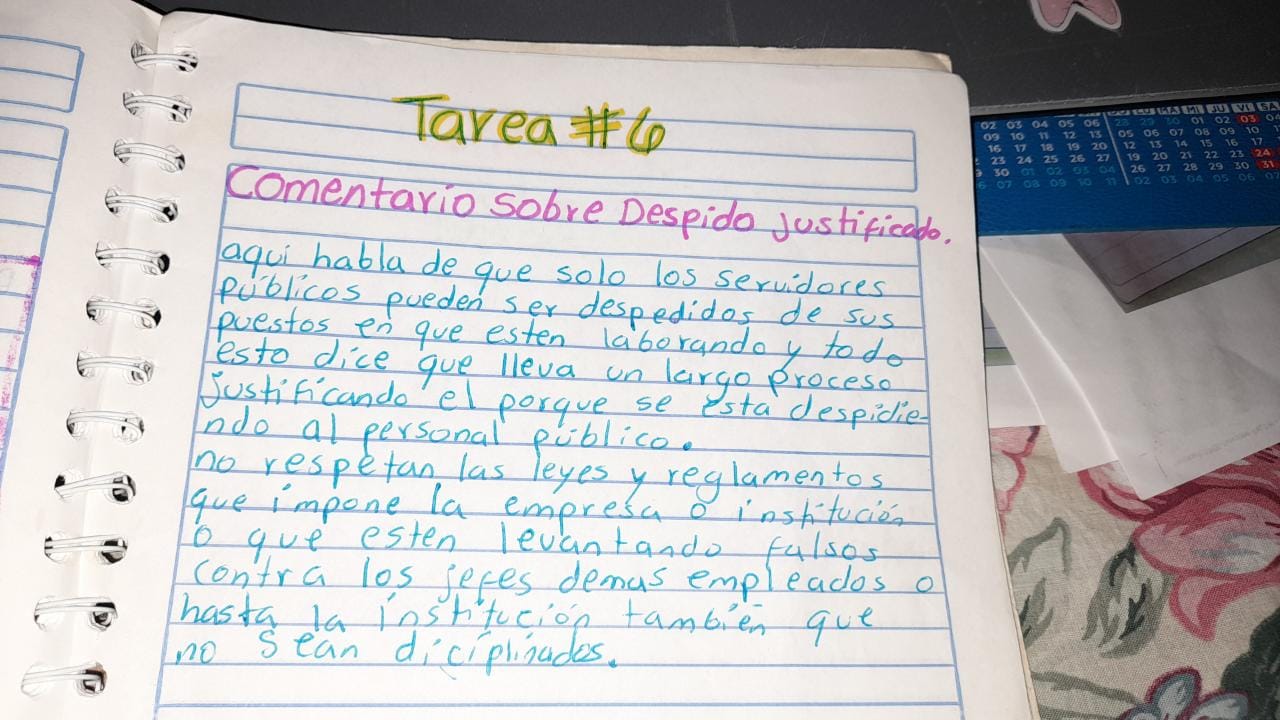 Tarea #6
Comentario sobre Despido justificado.
aquí habla de que solo los servidores
públicos pueden ser despedidos de sus
puestos en que esten laborando y todo
esto dice que lleva un largo proceso
justificando el porque se esta despidie-
ndo al personal público.
no respetan las leyes y reglamentos
que impone la empresa o institución
o que esten levantando falsos
contra los jefes demas empleados o
hasta la institución también que
no sean diciplinados.
02 03 04 05 06
09 10 11 12 13
16 17 18 19 20
23 24 25 26 27
30 01 02 03 04
07 08 09 10 11
LU MA MI JU VI SA
28 29 30 01 02 03 04
05 06 07 08 09 10
12 13 14 15 16 17
19 20 21 22 23 24
26 27 28 29 30 31
02 03 04 05 06 07